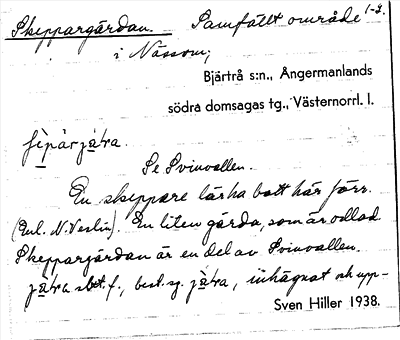 Skeppargärdan. Samfällt område 1-2.
i Nässom;
Bjärtrå s:n., Ångermanlands
södra domsagas tg., Västernorrl. l.
Se Svinvallen.
En skeppare lär ha bott här förr.
(Enl. N. Veslin). En liten gärda, som är odlad
Skeppargärdan är en del av Svinvallen.
jàtra sbst. f., best. sg. jàtra, inhägnat och upp-
Sven Hiller 1938.